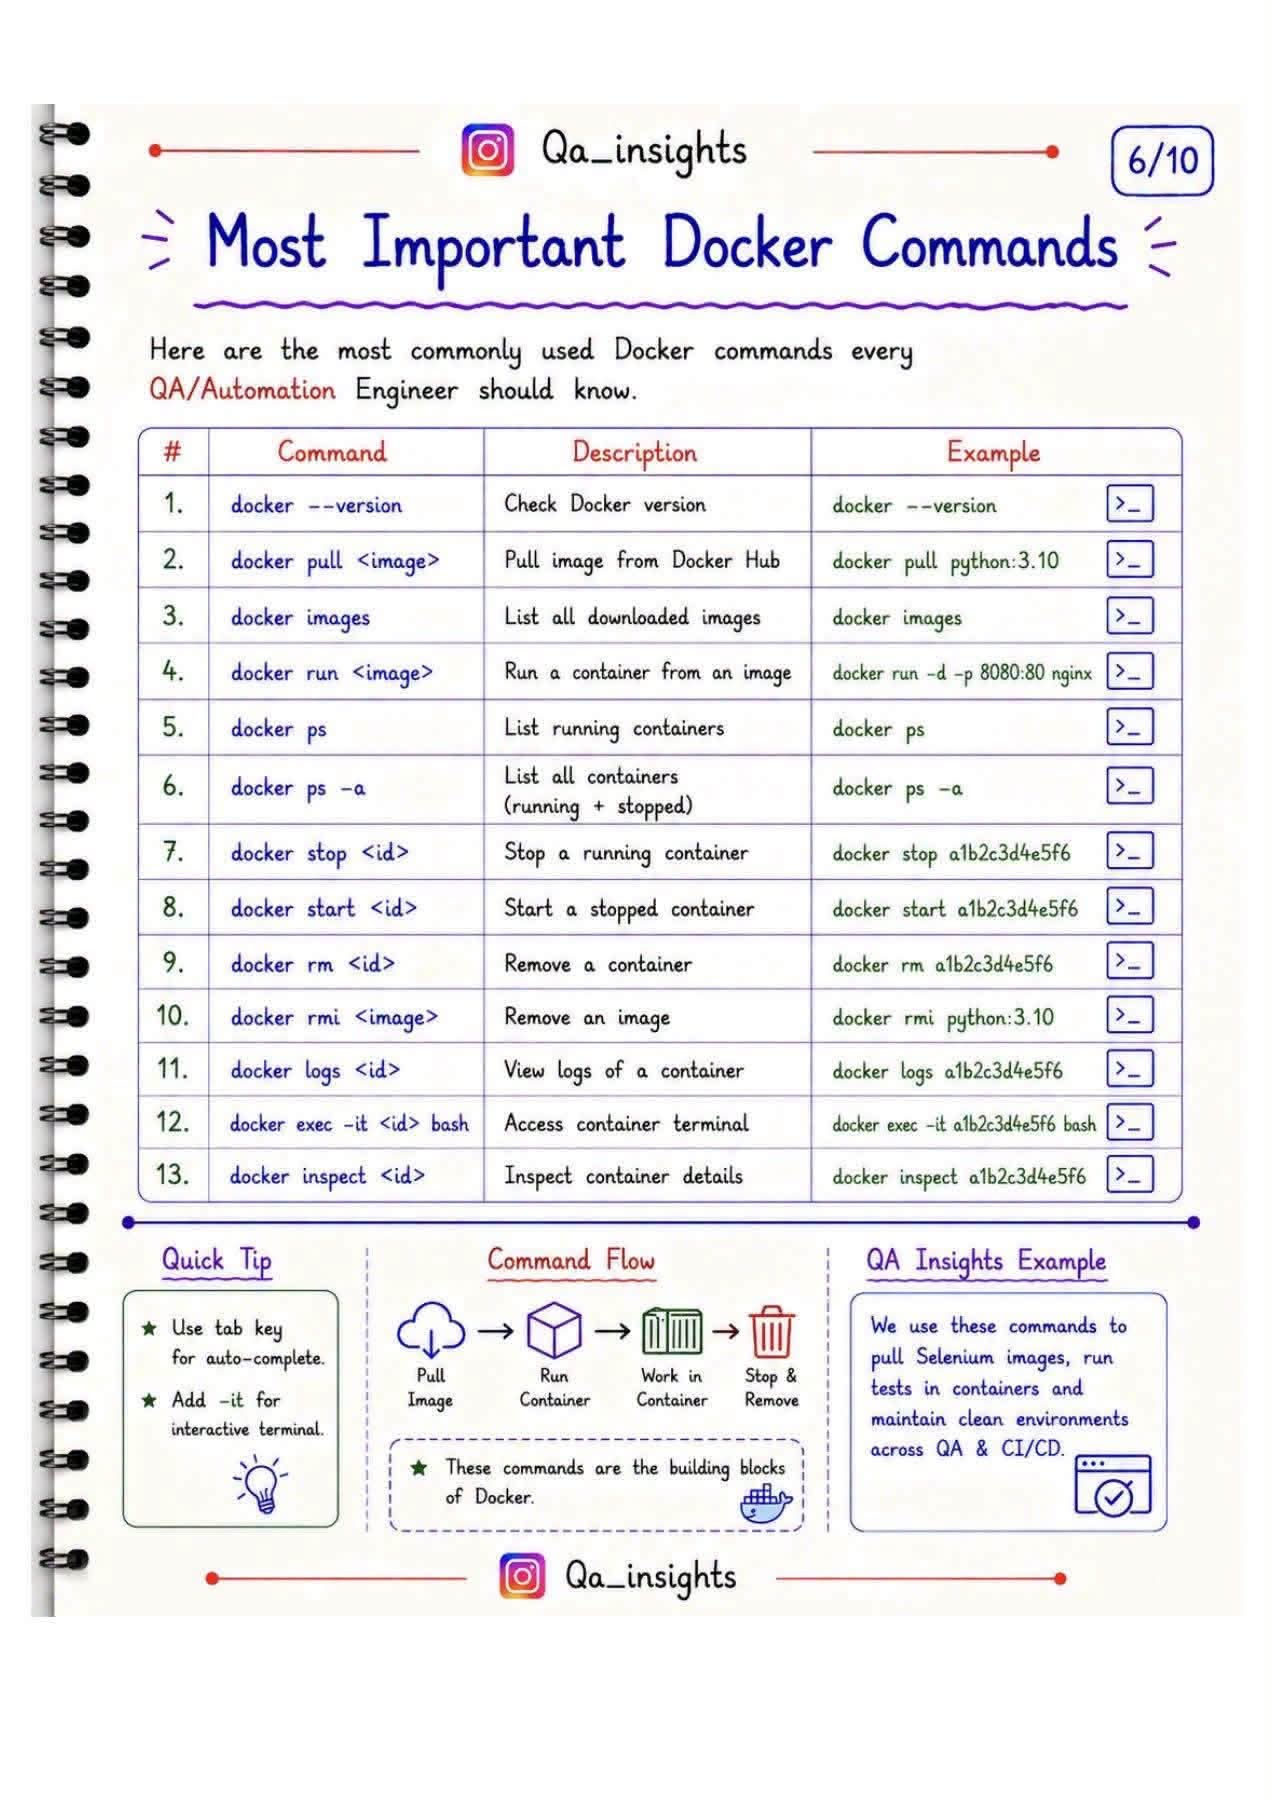 Qa_insights
6/10
Most Important Docker Commands
Here are the most commonly used Docker commands every
QA/Automation Engineer should know.
# Command Description Example
1. docker --version Check Docker version docker --version >_
2. docker pull <image> Pull image from Docker Hub docker pull python:3.10 >_
3. docker images List all downloaded images docker images >_
4. docker run <image> Run a container from an image docker run -d -p 8080:80 nginx >_
5. docker ps List running containers docker ps >_
6. docker ps -a List all containers
(running + stopped) docker ps -a >_
7. docker stop <id> Stop a running container docker stop a1b2c3d4e5f6 >_
8. docker start <id> Start a stopped container docker start a1b2c3d4e5f6 >_
9. docker rm <id> Remove a container docker rm a1b2c3d4e5f6 >_
10. docker rmi <image> Remove an image docker rmi python:3.10 >_
11. docker logs <id> View logs of a container docker logs a1b2c3d4e5f6 >_
12. docker exec -it <id> bash Access container terminal docker exec -it a1b2c3d4e5f6 bash >_
13. docker inspect <id> Inspect container details docker inspect a1b2c3d4e5f6 >_
Quick Tip
★ Use tab key
for auto-complete.
★ Add -it for
interactive terminal.
Command Flow
Pull
Image
Run
Container
Work in
Container
Stop &
Remove
★ These commands are the building blocks
of Docker.
QA Insights Example
We use these commands to
pull Selenium images, run
tests in containers and
maintain clean environments
across QA & CI/CD.
Qa_insights